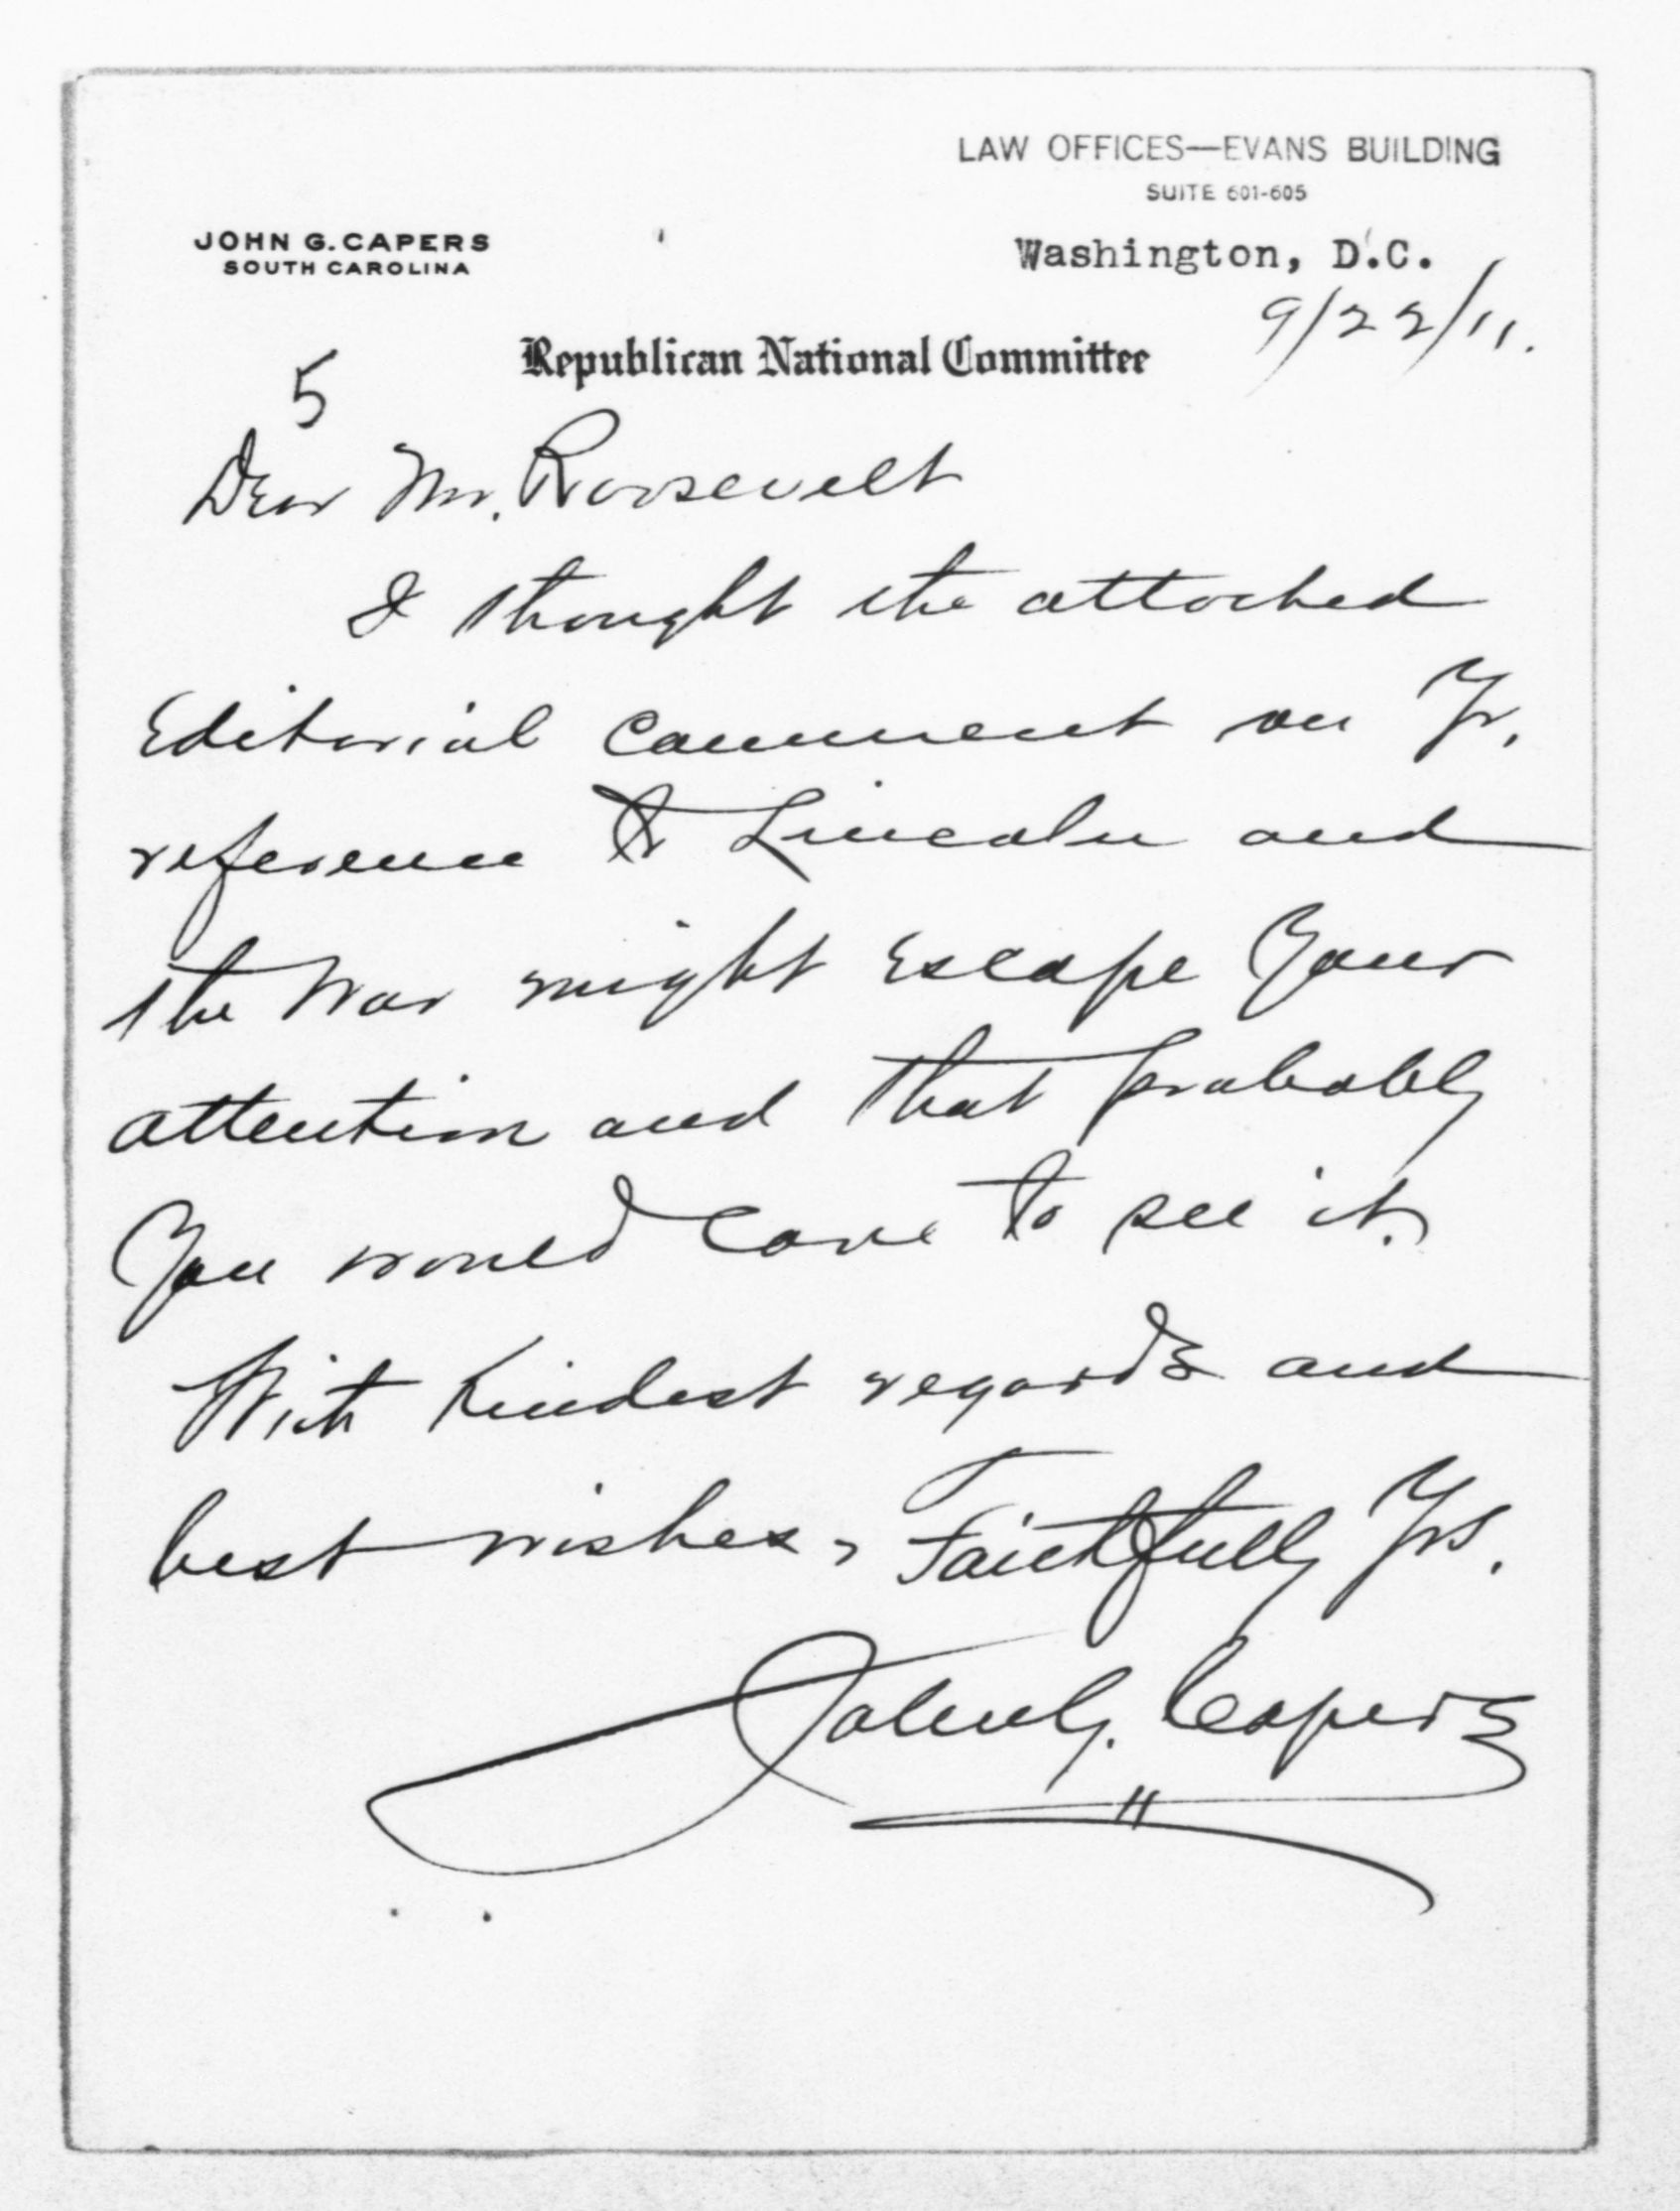 LAW OFFICES—EVANS BUILDING
SUITE 601-605
JOHN G. CAPERS
SOUTH CAROLINA
Washington, D.C.
9/22/11.
Republican National Committee
5
Dear Mr. Roosevelt
I thought the attached
Editorial comment on Yr.
reference to Lincoln and
the War might escape Your
attention and that probably
You would care to see it.
With kindest regards and
best wishes, Faithfully Yrs.
John G. Capers